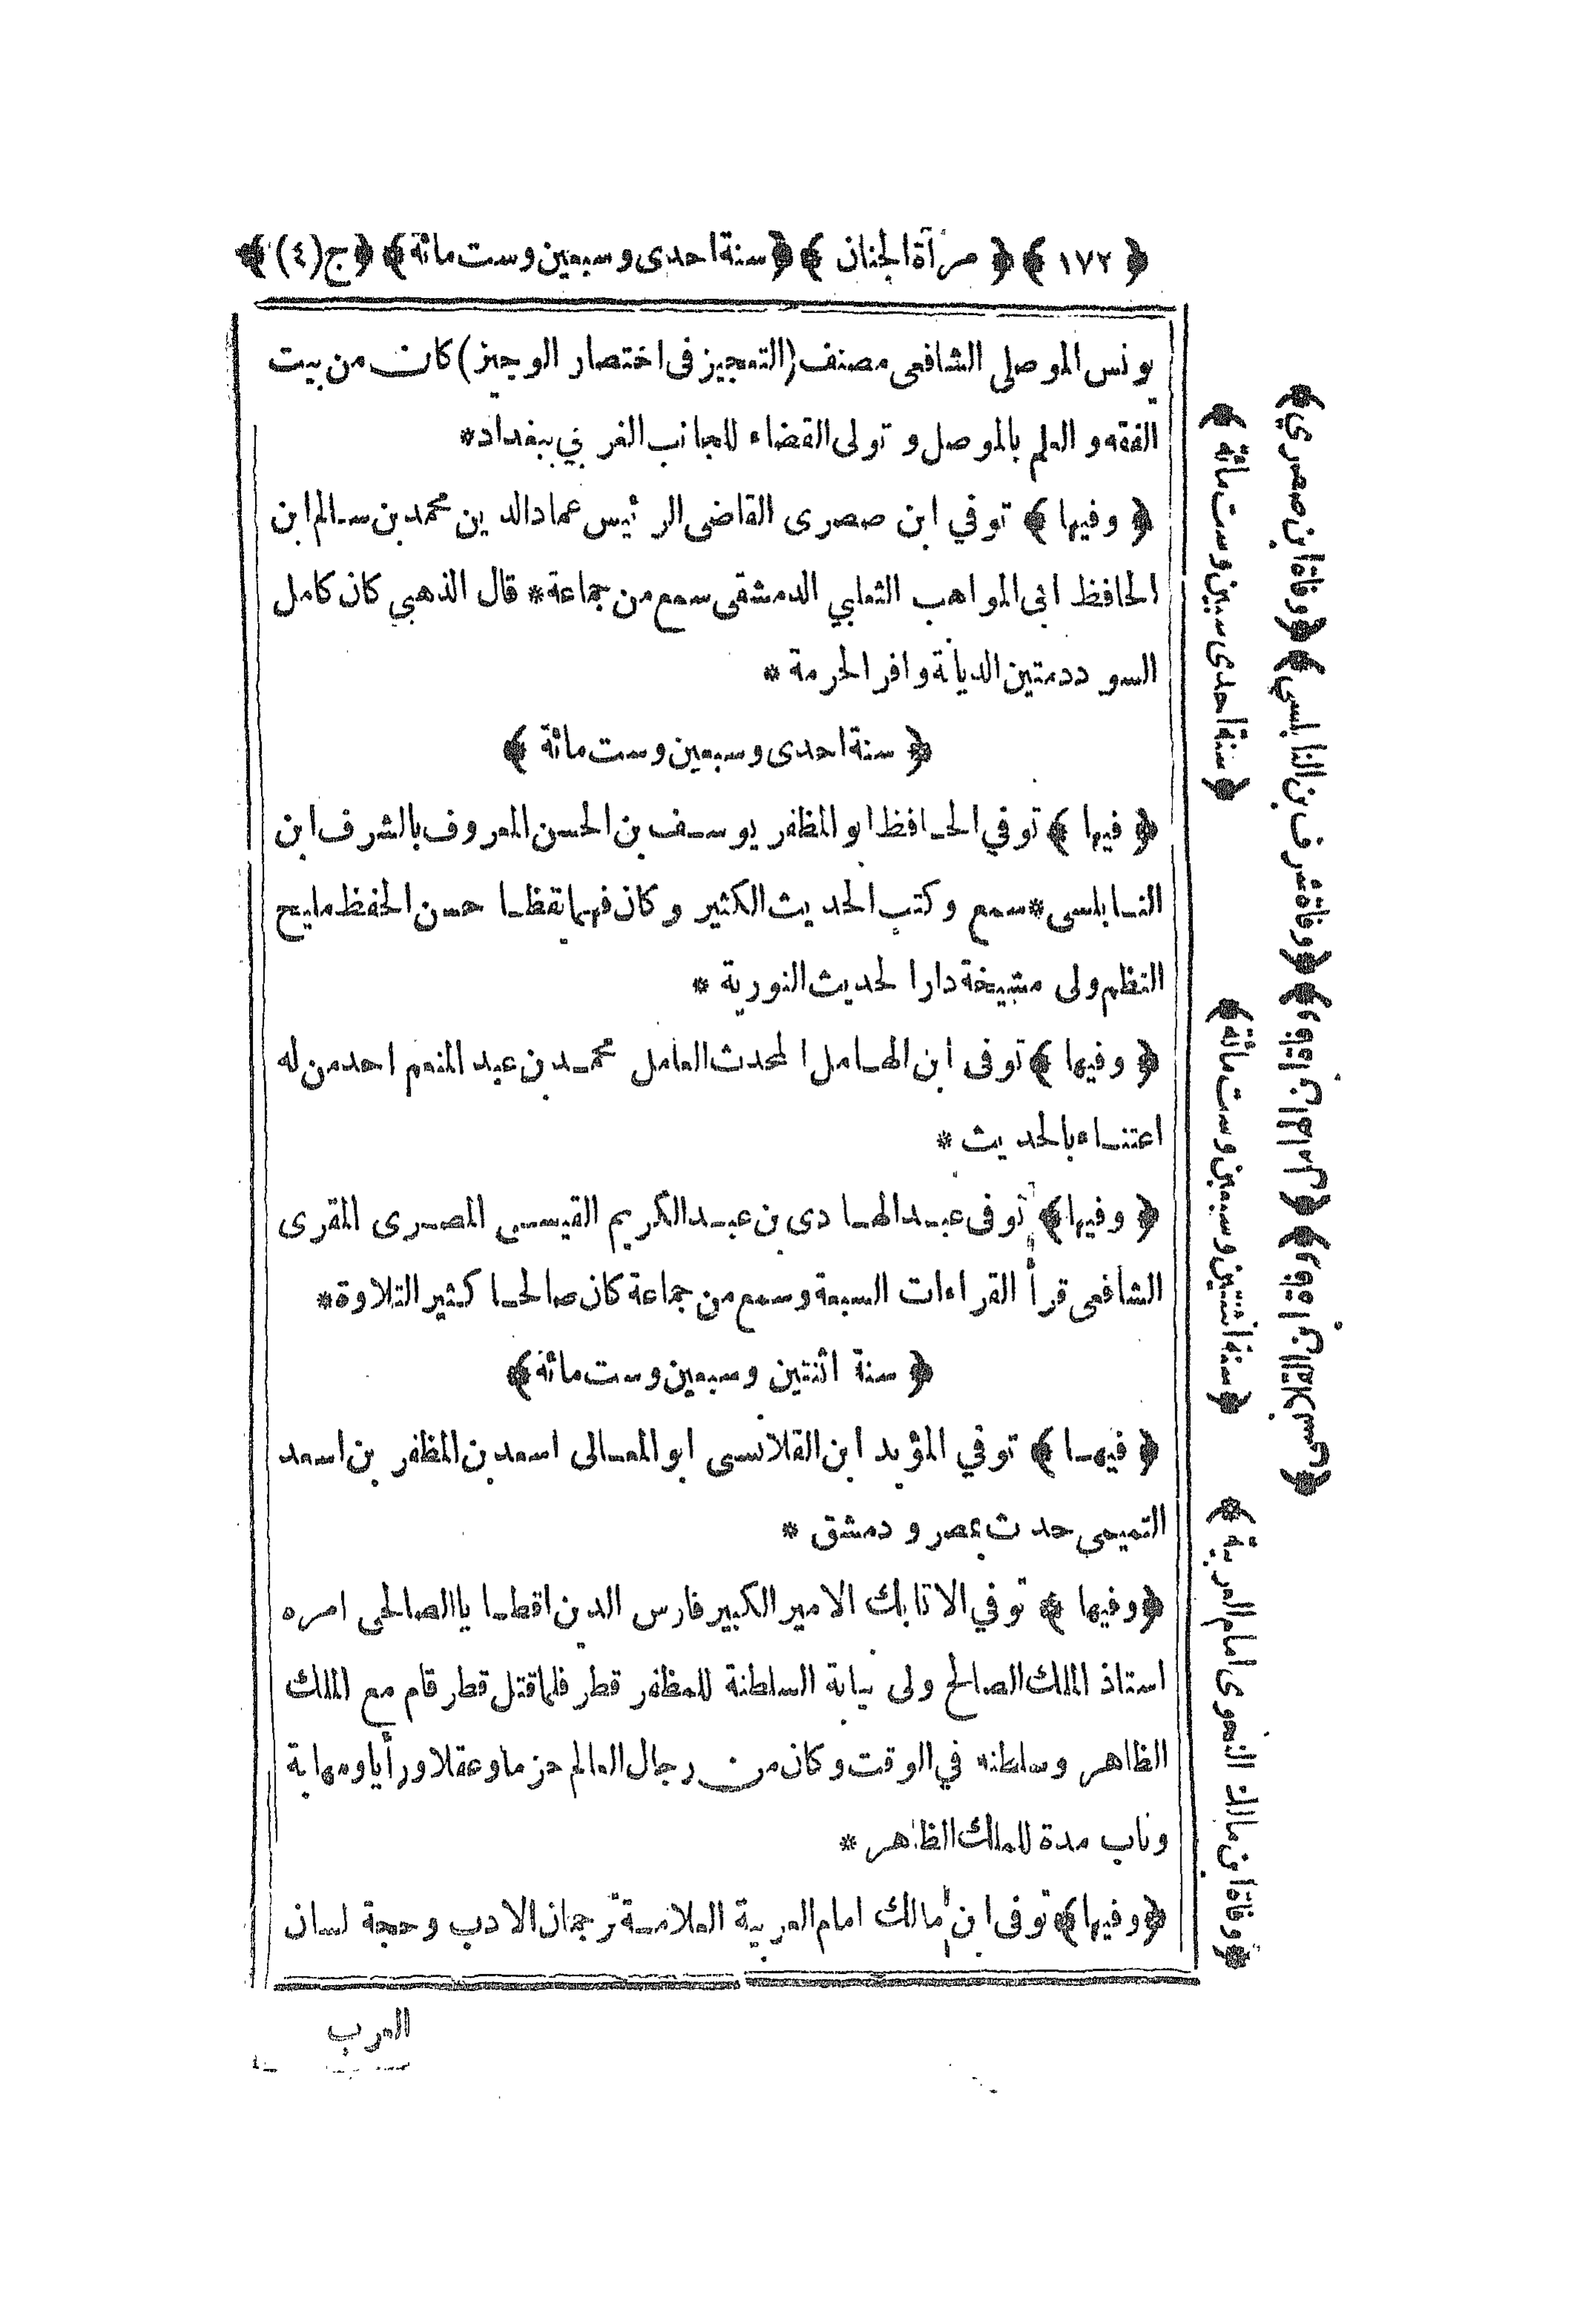 ﴿ ١٧٢ ﴾ ﴿ مرآة الجنان ﴾ ﴿ سنة احدى وسبعين وست مائة ﴾ ﴿ ج (٤) ﴾
يونس الموصلى الشافعى مصنف (التعجيز فى اختصار الوجيز) كان من بيت
الفقه و العلم بالموصل و تولى القضاء للجانب الغربي ببغداد*
﴿ وفيها ﴾ توفي ابن صصرى القاضى الرئيس عماد الدين محمد بن سالم ابن
الحافظ ابى المواهب الثعلبي الدمشقى سمع من جماعة* قال الذهبي كان كامل
السودد متين الديانة وافر الحرمة *
﴿ سنة احدى وسبعين وست مائة ﴾
﴿ فيها ﴾ توفي الحافظ ابو المظفر يوسف بن الحسن المعروف بالشرف ابن
النابلسى *سمع وكتب الحديث الكثير وكان فهما يقظا حسن الحفظ مليح
النظم ولى مشيخة دار الحديث النورية *
﴿ وفيها ﴾ توفى ابن الهامل المحدث العامل محمد بن عبد المنعم احد من له
اعتناء بالحديث *
﴿ وفيها ﴾ توفى عبد الهادى بن عبد الكريم القيسى المصرى المقرى
الشافعى قرأ القراءات السبعة وسمع من جماعة كان صالحا كثير التلاوة*
﴿ سنة اثنتين وسبعين وست مائة ﴾
﴿ فيها ﴾ توفي المؤيد ابن القلانسى ابو المعالى اسعد بن المظفر بن اسعد
التميمى حدث بمصر و دمشق *
﴿ وفيها ﴾ توفي الاتابك الامير الكبير فارس الدين اقطايا الصالحى امره
استاذ الملك الصالح ولى نيابة السلطنة للمظفر قطر فلما قتل قطر قام مع الملك
الظاهر وسلطنه في الوقت وكان من رجال العالم حزما وعقلا ورأيا ومهابة
وناب مدة للملك الظاهر *
﴿ وفيها ﴾ توفى ابن مالك امام العربية العلامة ترجمان الادب وحجة لسان
العرب
﴿ وفاة ابن صصري ﴾
﴿ سنة احدى سبين وست مائة ﴾
﴿ وفاة شرف بن النابلسي ﴾
﴿ سنة اثنتين وسبعين وست مائة ﴾
﴿ وفاة ابن مالك النحوى امام العربية ﴾